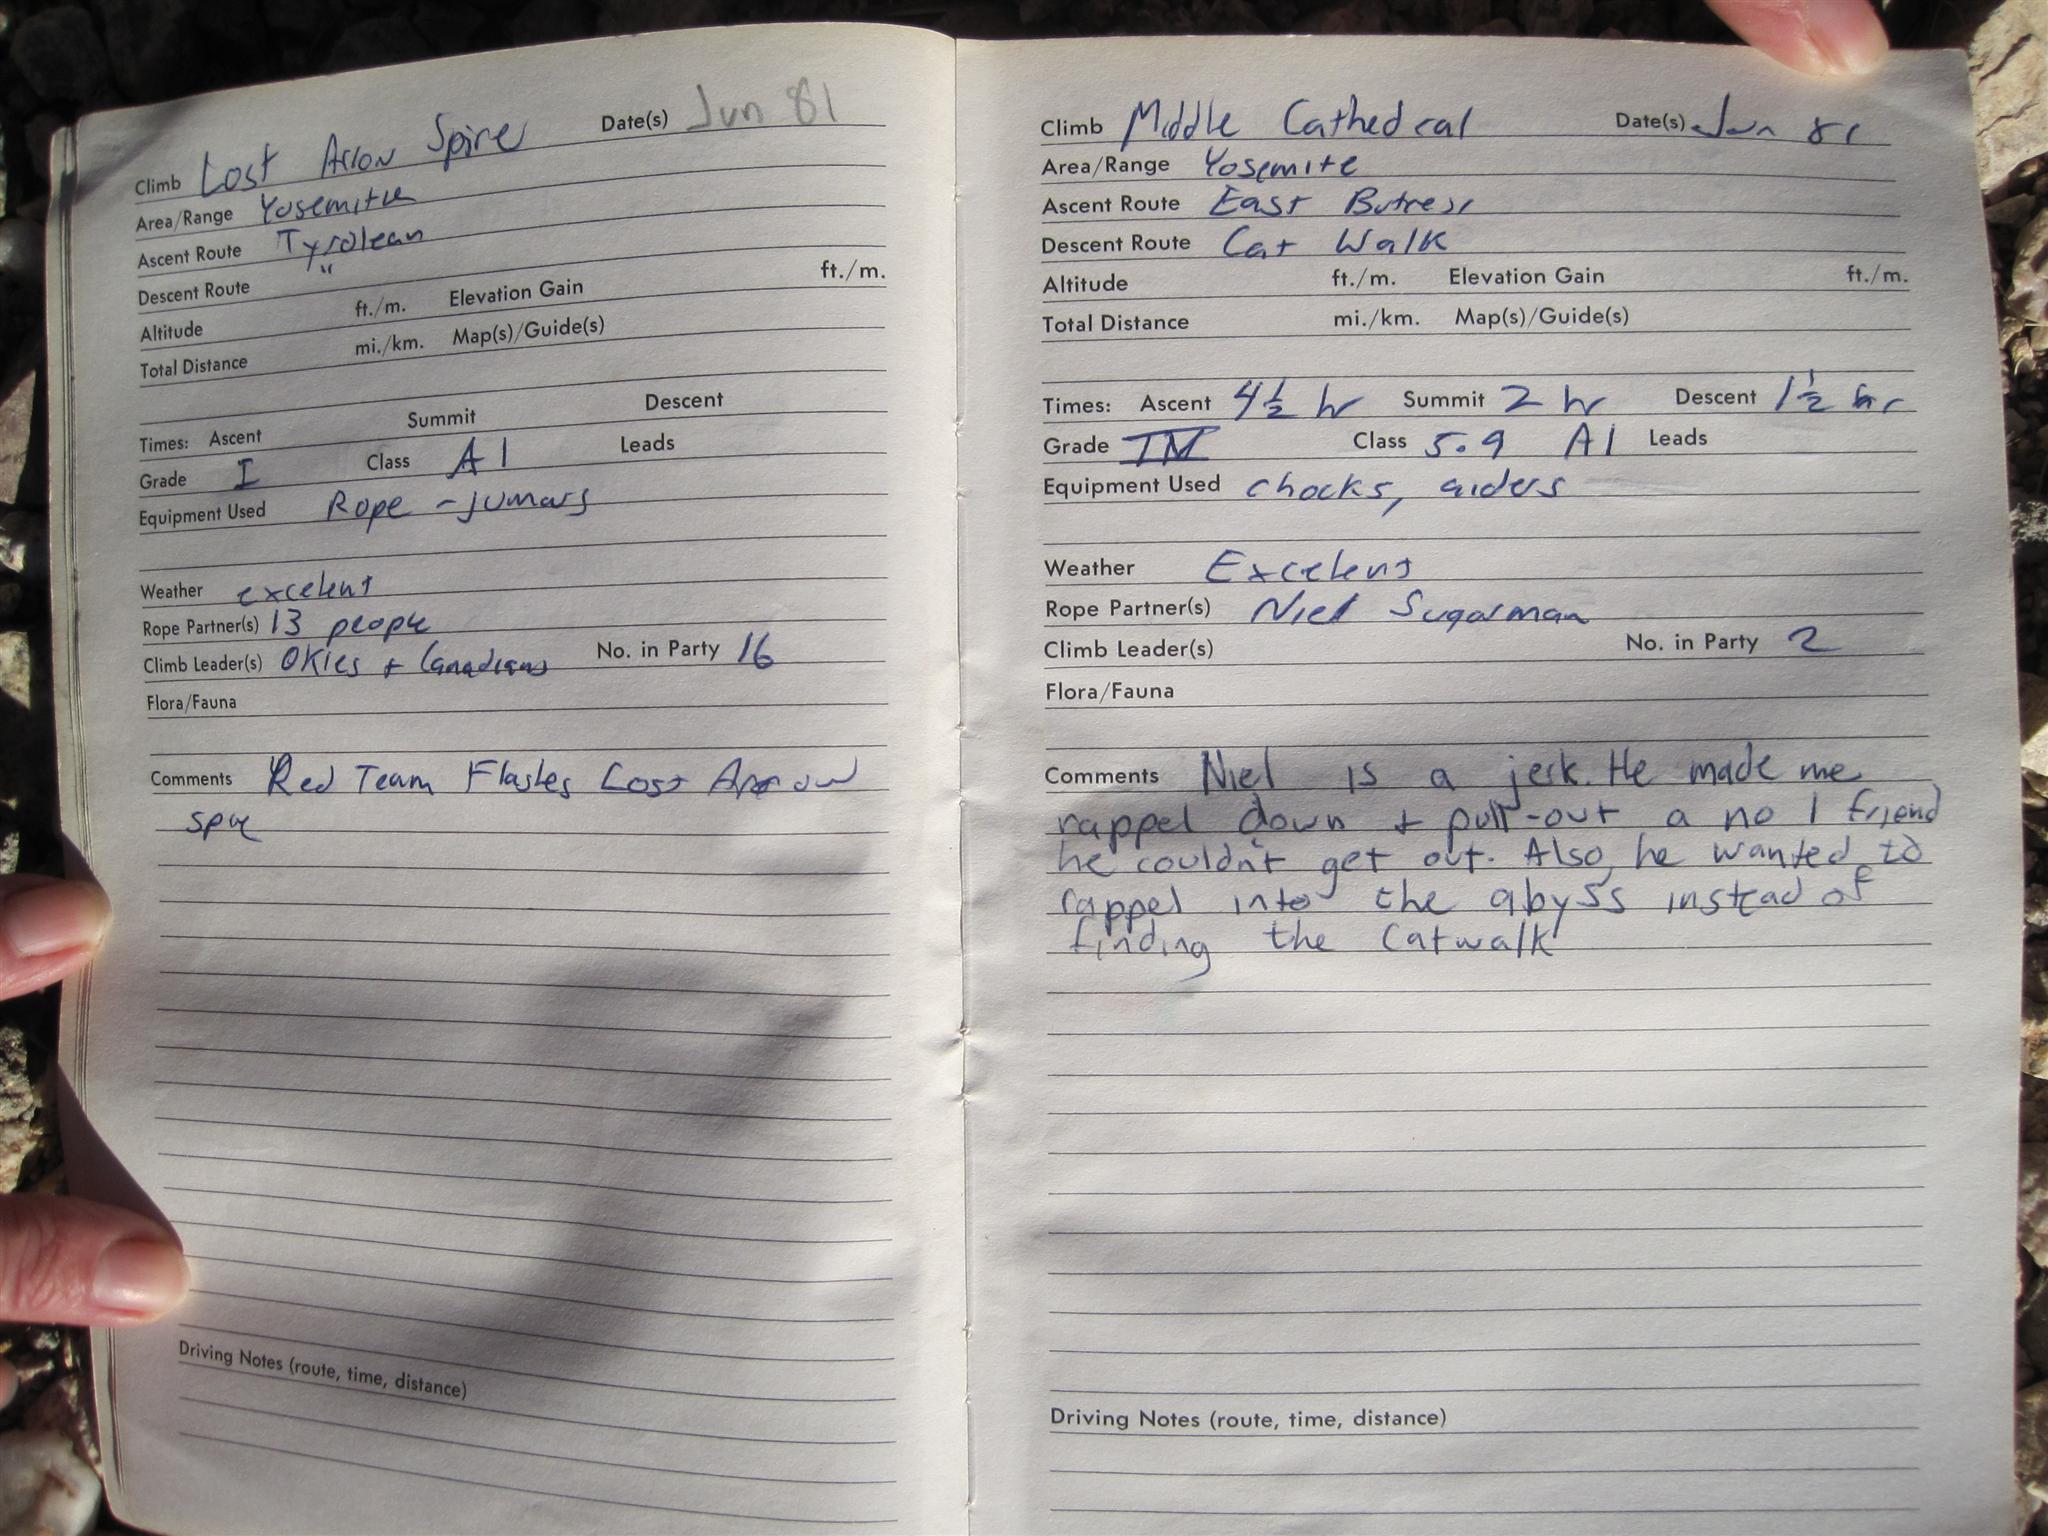 Climb Lost Arrow Spire Date(s) Jun 81
Area/Range Yosemite
Ascent Route Tyrolean
Descent Route "
Altitude ft./m. Elevation Gain ft./m.
Total Distance mi./km. Map(s)/Guide(s)
Times: Ascent Summit Descent
Grade I Class A1 Leads
Equipment Used Rope - jumars
Weather excelent
Rope Partner(s) 13 people
Climb Leader(s) Okies + Canadians No. in Party 16
Flora/Fauna
Comments Red Team Flashes Lost Arrow
Driving Notes (route, time, distance)
Climb Middle Cathedral Date(s) Jun 81
Area/Range Yosemite
Ascent Route East Butress
Descent Route Cat Walk
Altitude ft./m. Elevation Gain ft./m.
Total Distance mi./km. Map(s)/Guide(s)
Times: Ascent 4½ hr Summit 2 hr Descent 1½ hr
Grade IV Class 5.9 A1 Leads
Equipment Used chocks, aiders
Weather Excelent
Rope Partner(s) Niel Sugarman
Climb Leader(s) No. in Party 2
Flora/Fauna
Comments Niel is a jerk. He made me
rappel down + pull-out a no 1 friend
he couldn't get out. Also, he wanted to
rappel into the abyss instead of
finding the Catwalk
Driving Notes (route, time, distance)